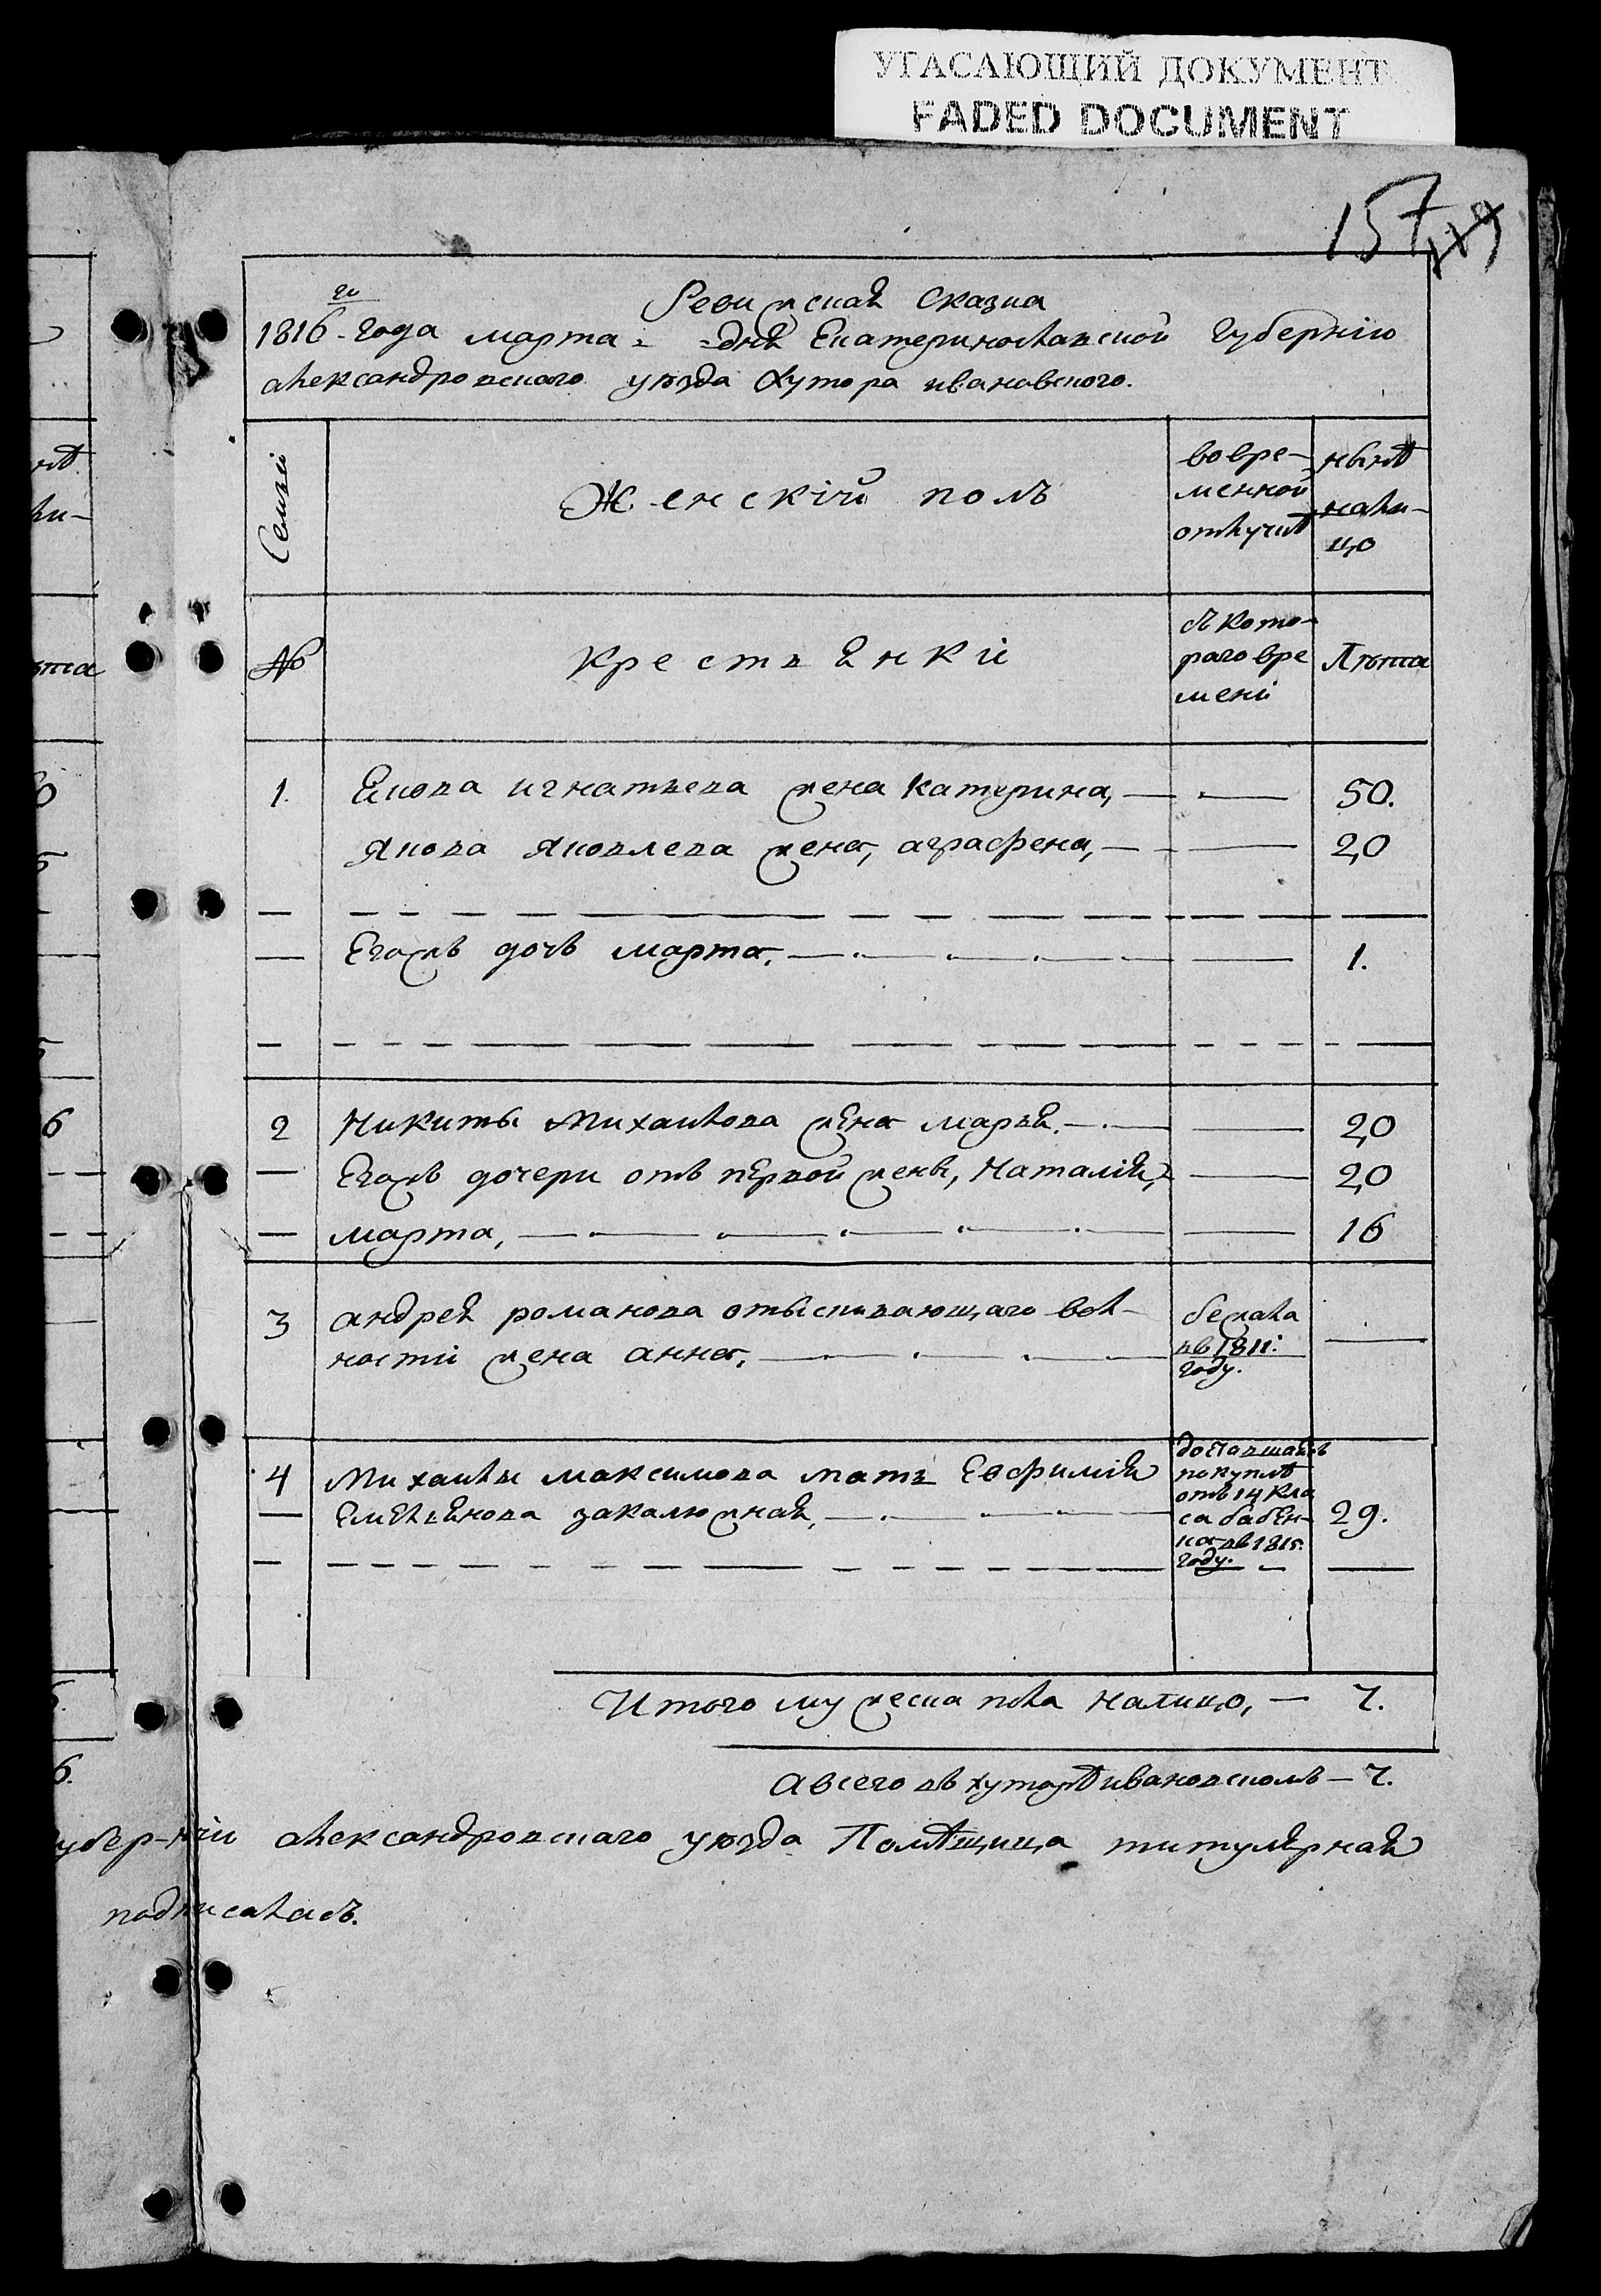 УГАСАЮЩИЙ ДОКУМЕНТ
FADED DOCUMENT
157
Ревижская Сказка
1816-го года марта = =дня Екатеринославской Губерніи
александровскаго уѣзда Хутора ивановского.
Семьи
Женскій полъ
во вре-
менной
отлучкѣ
нынѣ
нали-
цо
№
крестьянкі
съ кото-
раго вре
мени
Лѣта
1. Якова игнатьева жена катерина, 50.
Якова Яковлева жена, аграфена, 20
Егожъ дочь марта. 1.
2 Никиты Михаилова жена марья. 20
Егожъ дочери отъ первой жены, Наталія, 20
марта, 16
3 андрея романова отыскивающаго вол-
ности жена анна,
бежала
въ 1811:
году.
4 Михаилы максимова мать Евфимія
Емельянова закалюжная, 29.
доставшаясь
по купчѣ
отъ 14 кла
са бабен-
ка въ 1815:
году.
Итого мужеска пола налицо, — 7.
а всего въ хуторѣ ивановскомъ — 7.
убер-ніи александровскаго уѣзда Помѣщица титулярная
подписалась.